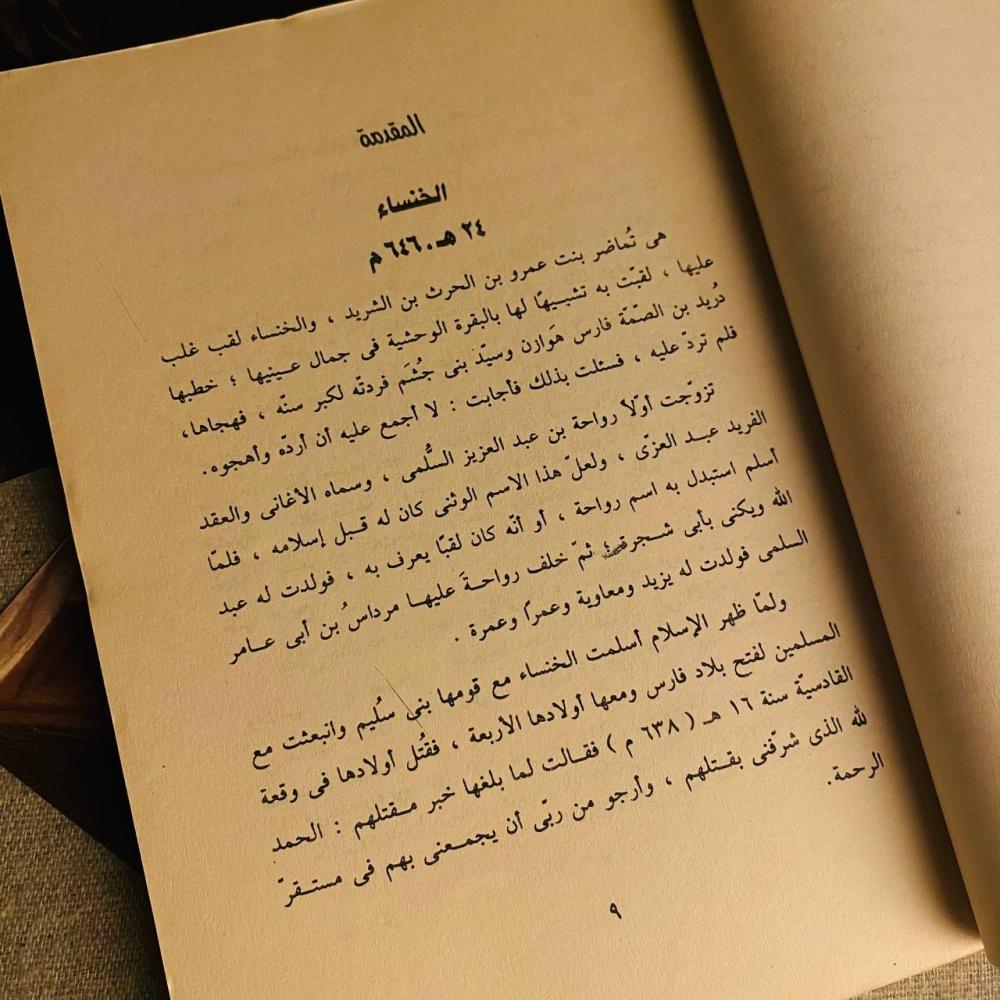 المقدمة
الخنساء
٢٤ هـ . ٦٤٦ م
هى تُماضر بنت عمرو بن الحرث بن الشريد ، والخنساء لقب غلب
عليها ، لقبّت به تشبيهًا لها بالبقرة الوحشية فى جمال عينيها ؛ خطبها
دُريد بن الصمّة فارس هَوازن وسيّد بنى جُشَم فردتّه لكبر سنّه ، فهجاها،
فلم تردّ عليه ، فسئلت بذلك فأجابت : لا أجمع عليه أن أردّه وأهجوه.
تزوّجت أوّلاً رواحة بن عبد العزيز السلُّمى ، وسماه الأغانى والعقد
الفريد عبد العزّى ، ولعلّ هذا الاسم الوثنى كان له قبل إسلامه ، فلمّا
أسلم استبدل به اسم رواحة ، أو أنّه كان لقبًا يعرف به ، فولدت له عبد
الله ويكنى بأبى شجرة ؛ ثمّ خلف رواحةَ عليها مرداسُ بن أبى عامر
السلمى فولدت له يزيد ومعاوية وعمرًا وعمرة .
ولمّا ظهر الإسلام أسلمت الخنساء مع قومها بنى سُليم وانبعثت مع
المسلمين لفتح بلاد فارس ومعها أولادها الأربعة ، فقتُل أولادها فى وقعة
القادسيّة سنة ١٦ هـ ( ٦٣٨ م ) فقالت لما بلغها خبر مقتلهم : الحمد
لله الذى شرّفنى بقتلهم ، وأرجو من ربّى أن يجمعنى بهم فى مستقرّ
الرحمة.
٩